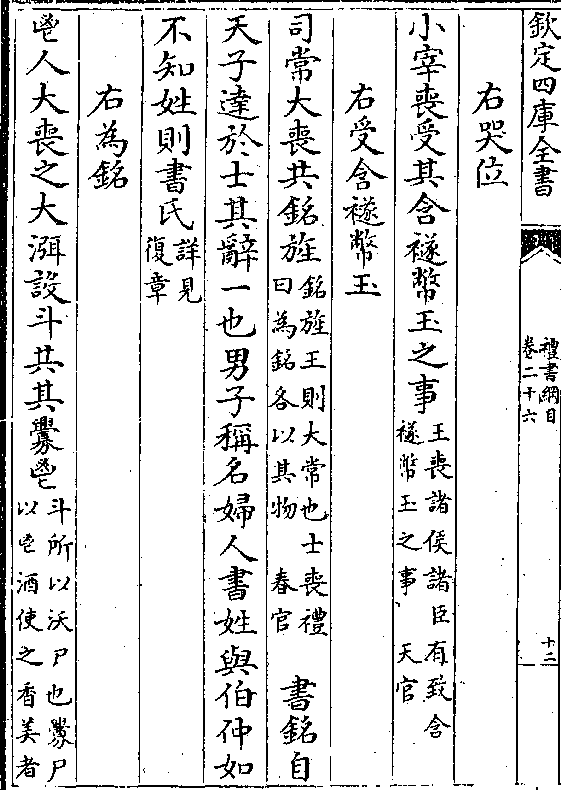 欽定四庫全書
禮書綱目
卷二十六
十二
右哭位
小宰喪受其含襚幣玉之事王喪諸侯諸臣有致含
襚幣玉之事　天官
右受含襚幣玉
司常大喪共銘旌銘旌王則大常也士喪禮
曰為銘各以其物　春官　書銘自
天子達於士其辭一也男子稱名婦人書姓與伯仲如
不知姓則書氏詳見
復章
右為銘
鬯人大喪之大渳設斗共其釁鬯斗所以沃尸也釁尸
以鬯酒使之香美者